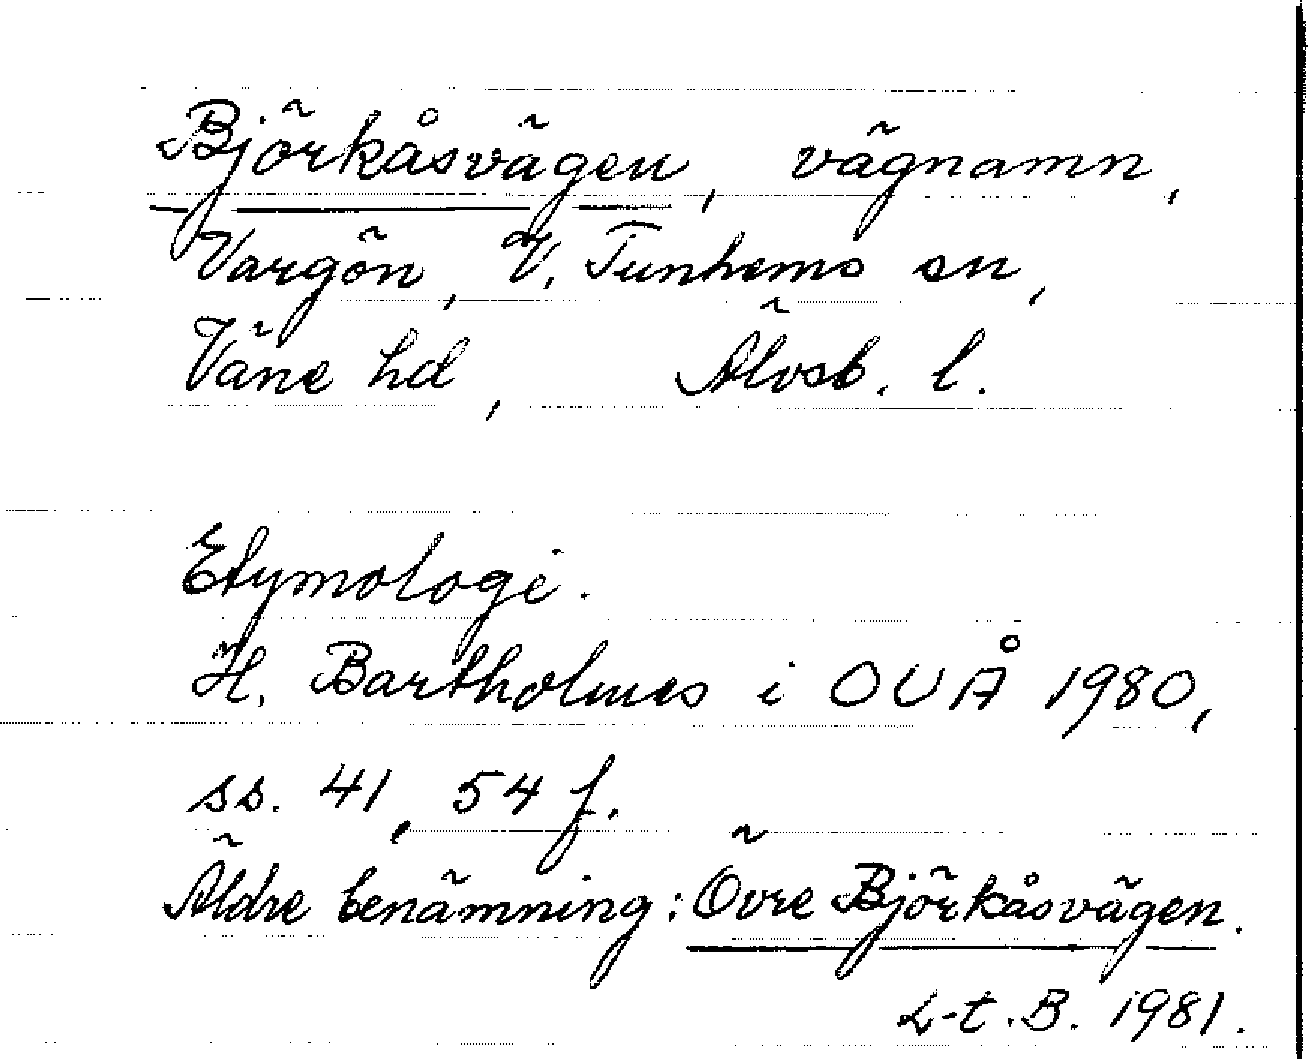 Björkåsvägen, vägnamn,
Vargön, V. Tunhems sn,
Väne hd, Älvsb. l.
Etymologi.
H. Bartholmes i OUÅ 1980,
ss. 41, 54 f.
Äldre benämning: Övre Björkåsvägen.
L-t. B. 1981.